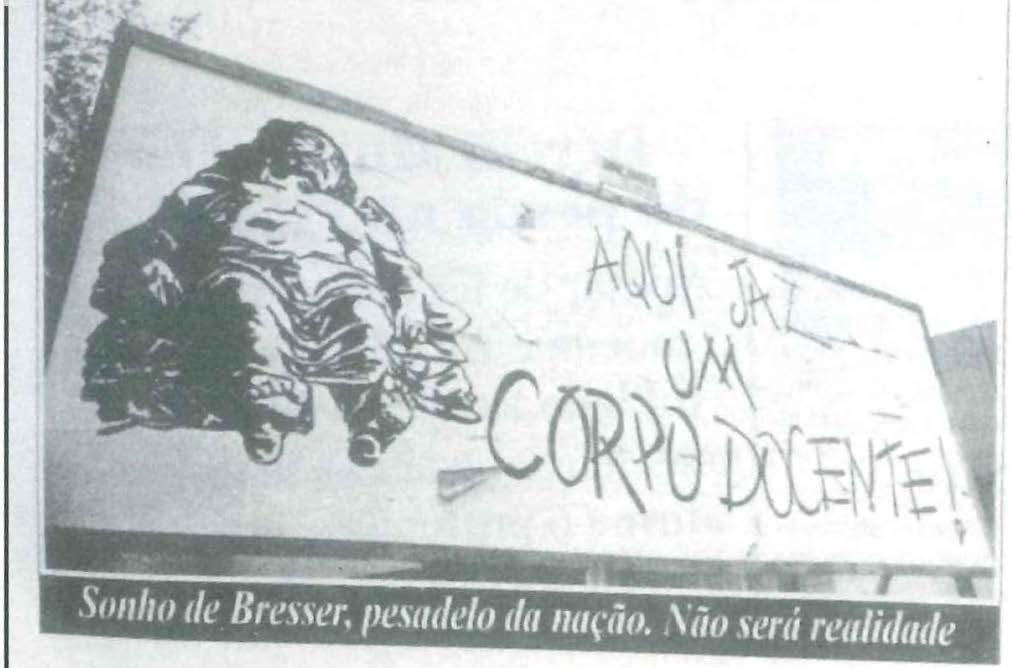 AQUI JAZ
UM
CORPO DOCENTE!
Sonho de Bresser, pesadelo da nação. Não será realidade